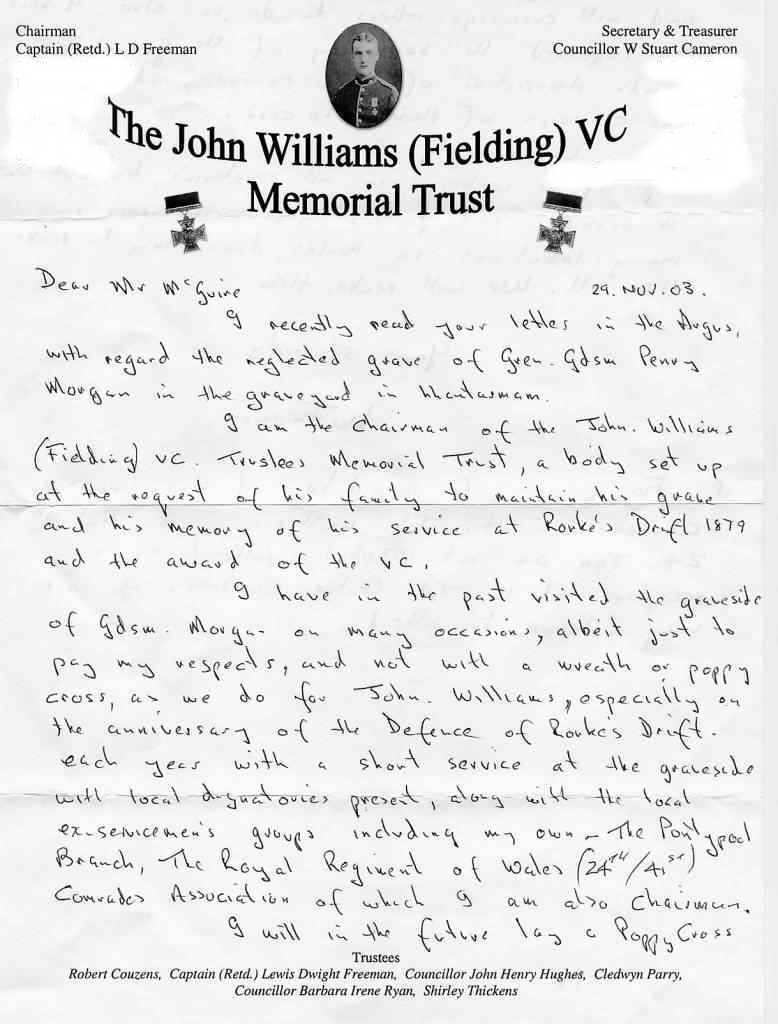 Chairman
Captain (Retd.) L D Freeman
Secretary & Treasurer
Councillor W Stuart Cameron
The John Williams (Fielding) VC
Memorial Trust
Dear Mr McGuire
29. NOV. 03.
I recently read your letter in the Argus,
with regard the neglected grave of Gren. Gdsm Penry
Morgan in the graveyard in Llantarnam.
I am the Chairman of the John. Williams
(Fielding) VC. Trustees Memorial Trust, a body set up
at the request of his family to maintain his grave
and his memory of his service at Rorke's Drift 1879
and the award of the VC.
I have in the past visited the graveside
of Gdsm. Morgan on many occasions, albeit just to
pay my respects, and not with a wreath or poppy
cross, as we do for John. Williams, especially on
the anniversary of the Defence of Rorke's Drift.
each year with a short service at the graveside
with local dignatories present, along with the local
ex-servicemen's groups including my own - The Pontypool
Branch, The Royal Regiment of Wales (24TH/41ST)
Comrades Association of which I am also Chairman.
I will in the future lay a Poppy Cross
Trustees
Robert Couzens, Captain (Retd.) Lewis Dwight Freeman, Councillor John Henry Hughes, Cledwyn Parry,
Councillor Barbara Irene Ryan, Shirley Thickens